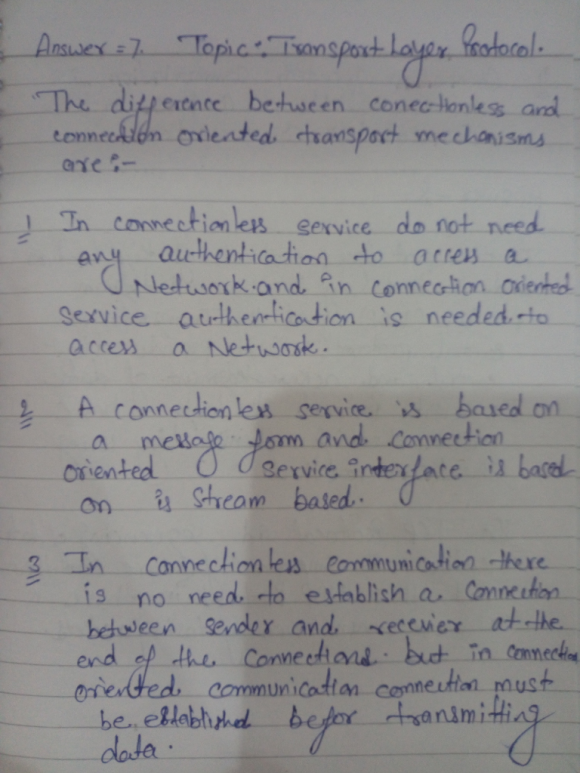 Answer = 7. Topic:- Transport Layer Protocol.
The difference between conectionless and
connection oriented transport mechanisms
are :-
1 In connectionless service do not need
any authentication to access a
Network. and in connection oriented
service authentication is needed to
access a Network.
2 A connectionless service is based on
a message form and connection
oriented service interface is based
on is Stream based.
3 In connectionless communication there
is no need to establish a connection
between sender and recevier at the
end of the connections. but in connection
oriented communication connection must
be established befor transmitting
data.